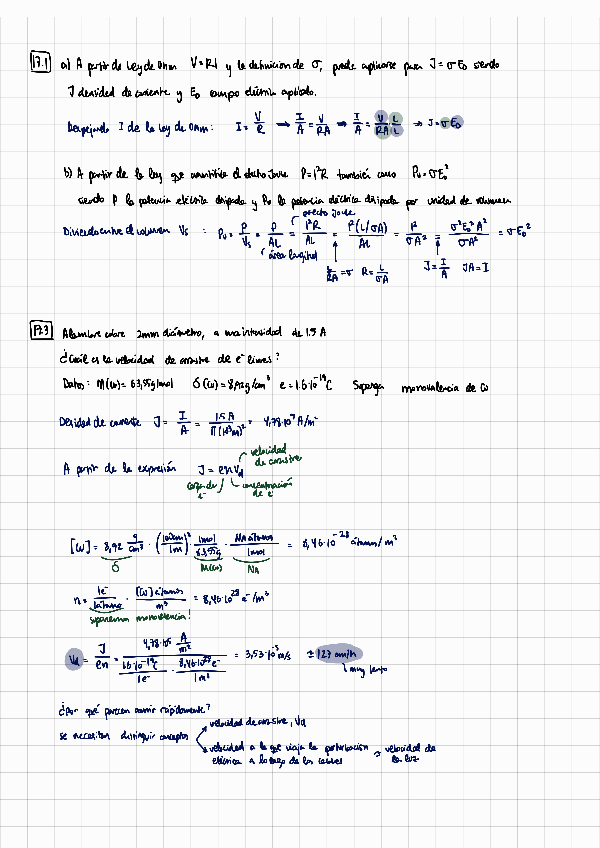 17.1 a) A partir de Ley de Ohm V=RI y la definición de σ, puede aplicarse para J=σE₀ siendo
J densidad de corriente y E₀ campo eléctrico aplicado.
Despejando I de la ley de Ohm: I = V/R → I/A = V/RA → I/A = V/RA · L/L → J=σE₀
b) A partir de la ley que cuantifica el efecto Joule P=I²R también como Pᵥ=σE₀²
siendo P la potencia eléctrica disipada y Pᵥ la potencia eléctrica disipada por unidad de volumen
efecto Joule
Dividiendo entre el volumen Vs : Pᵥ = P/Vs = P/AL = I²R/AL = I²(L/σA)/AL = I²/σA² = σ²E₀²A²/σA² = σE₀²
área longitud
L/RA = σ R = L/σA J = I/A JA = I
17.3 Alambre cobre 2mm diámetro, a una intensidad de 1.5 A
¿Cuál es la velocidad de arrastre de e⁻ libres?
Datos: M(Cu)= 63,55g/mol δ(Cu)= 8,92g/cm³ e = 1.6·10⁻¹⁹C Suponga monovalencia de Cu
Densidad de corriente J = I/A = 1.5 A/π(10⁻³m)² = 4,78·10⁵ A/m²
velocidad de arrastre
A partir de la expresión J = en Vd
carga de e⁻ concentración de e⁻
[Cu] = 8,92 g/cm³ · (100cm/1m)³ · 1mol/63,55g · NA átomos/1mol = 8,46·10⁻²⁸ átomos/m³
δ M(Cu) NA
n = 1e⁻/1átomo · [Cu] átomos/m³ = 8,46·10²⁸ e⁻/m³
suponemos monovalencia!
Vd = J/en = 4,78·10⁵ A/m² / 1.6·10⁻¹⁹C/1e⁻ · 8,46·10²⁸e⁻/1m³ = 3,53·10⁻⁵ m/s ≅ 127 mm/h
muy lento
¿Por qué parecen correr rápidamente?
velocidad de arrastre, Vd
se necesitan distinguir conceptos
velocidad a la que viaja la perturbación eléctrica a lo largo de los cables ≅ velocidad de la luz